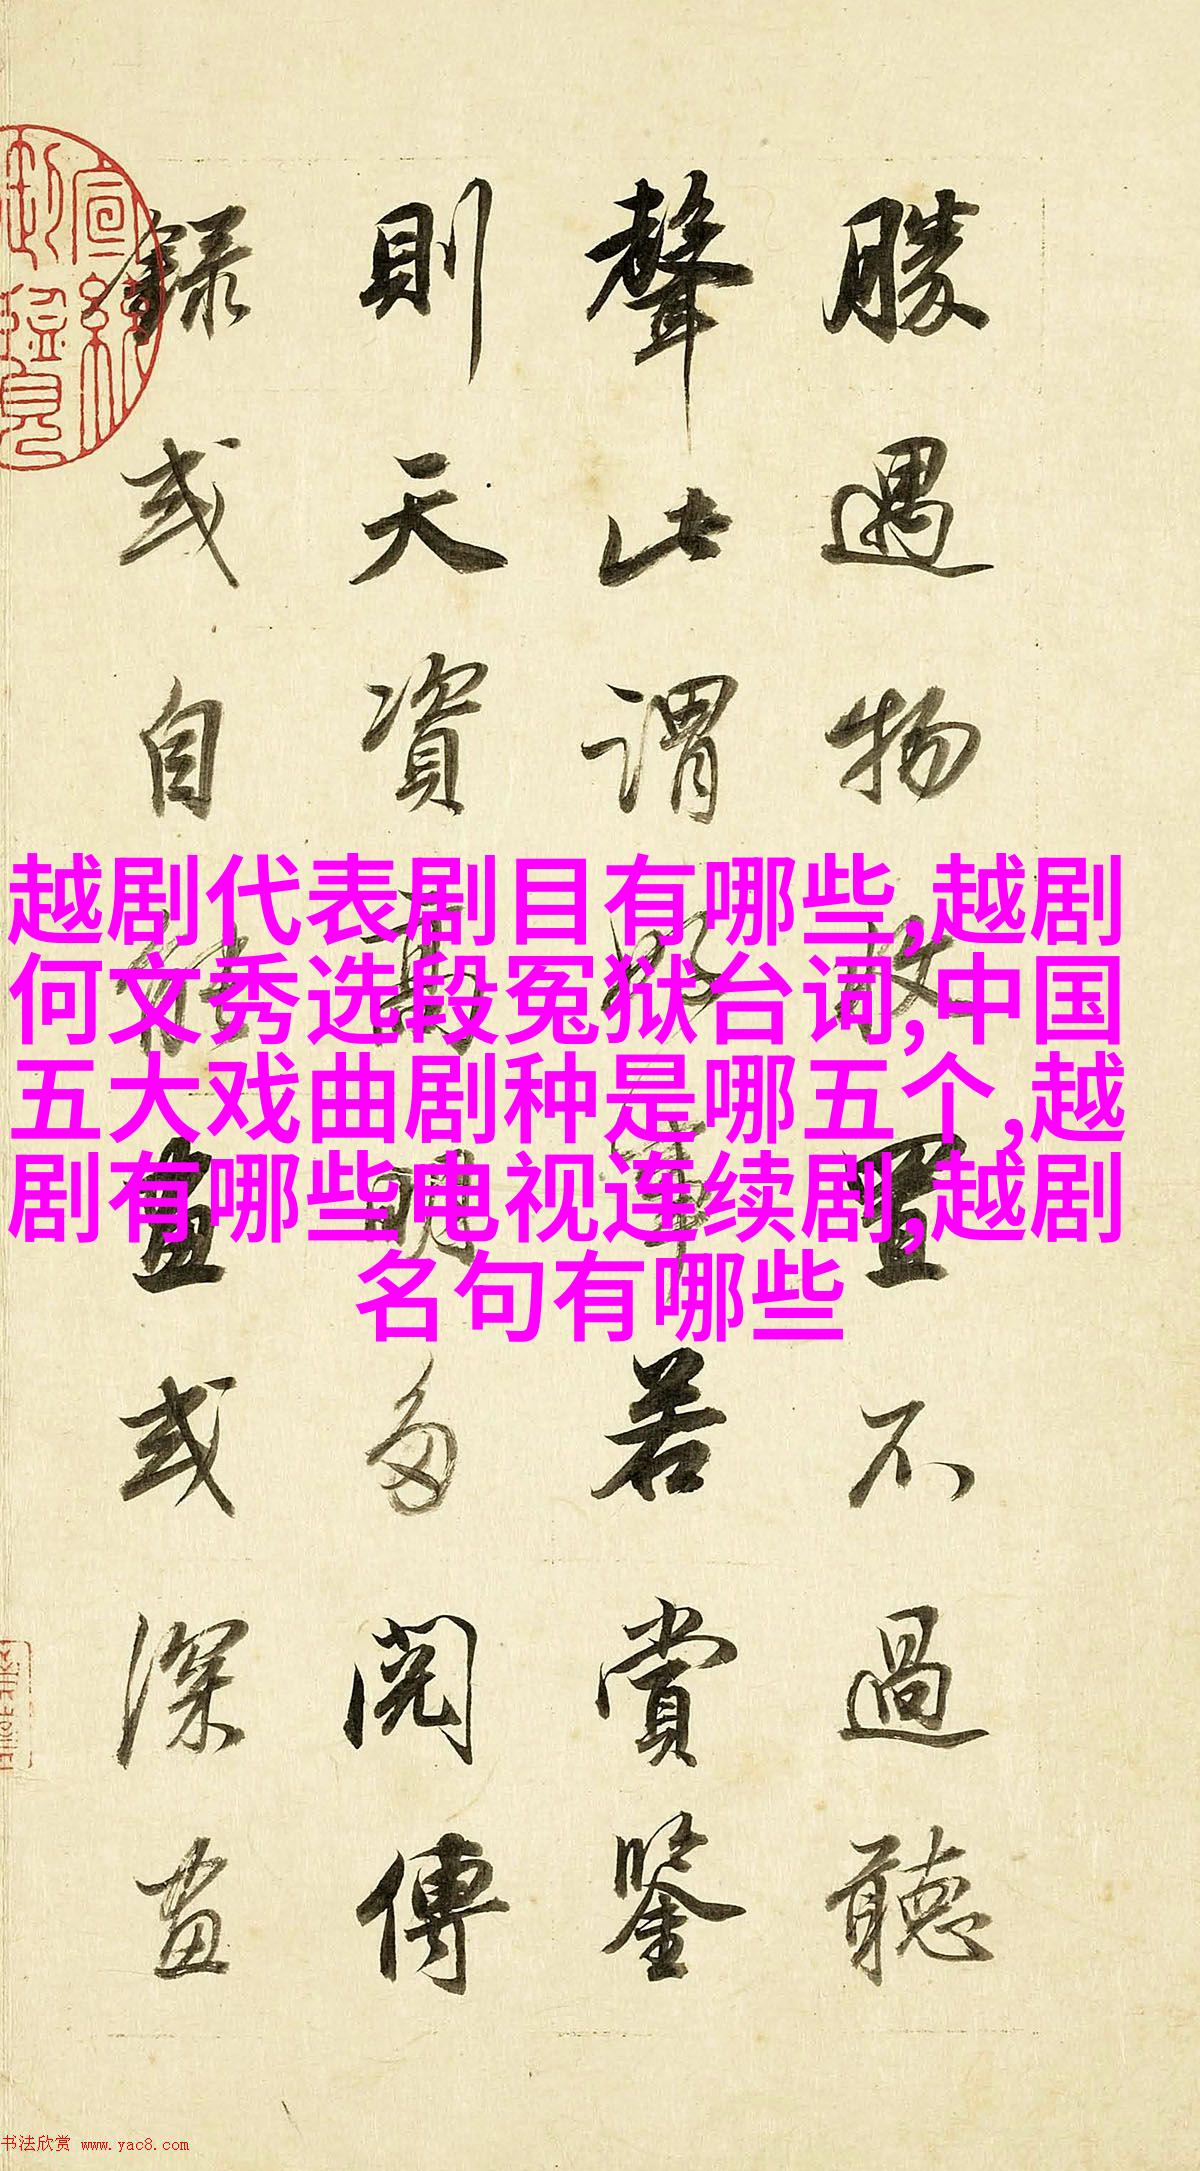 勝遇物收置不過聽
聲此謂好事若賞鑒
則天資高明多閱傳
錄或自能畫或深畫
宣統
御覽
越剧代表剧目有哪些,越剧
何文秀选段冤狱台词,中国
五大戏曲剧种是哪五个,越
剧有哪些电视连续剧,越剧
名句有哪些
书法欣赏 www.yac8.com